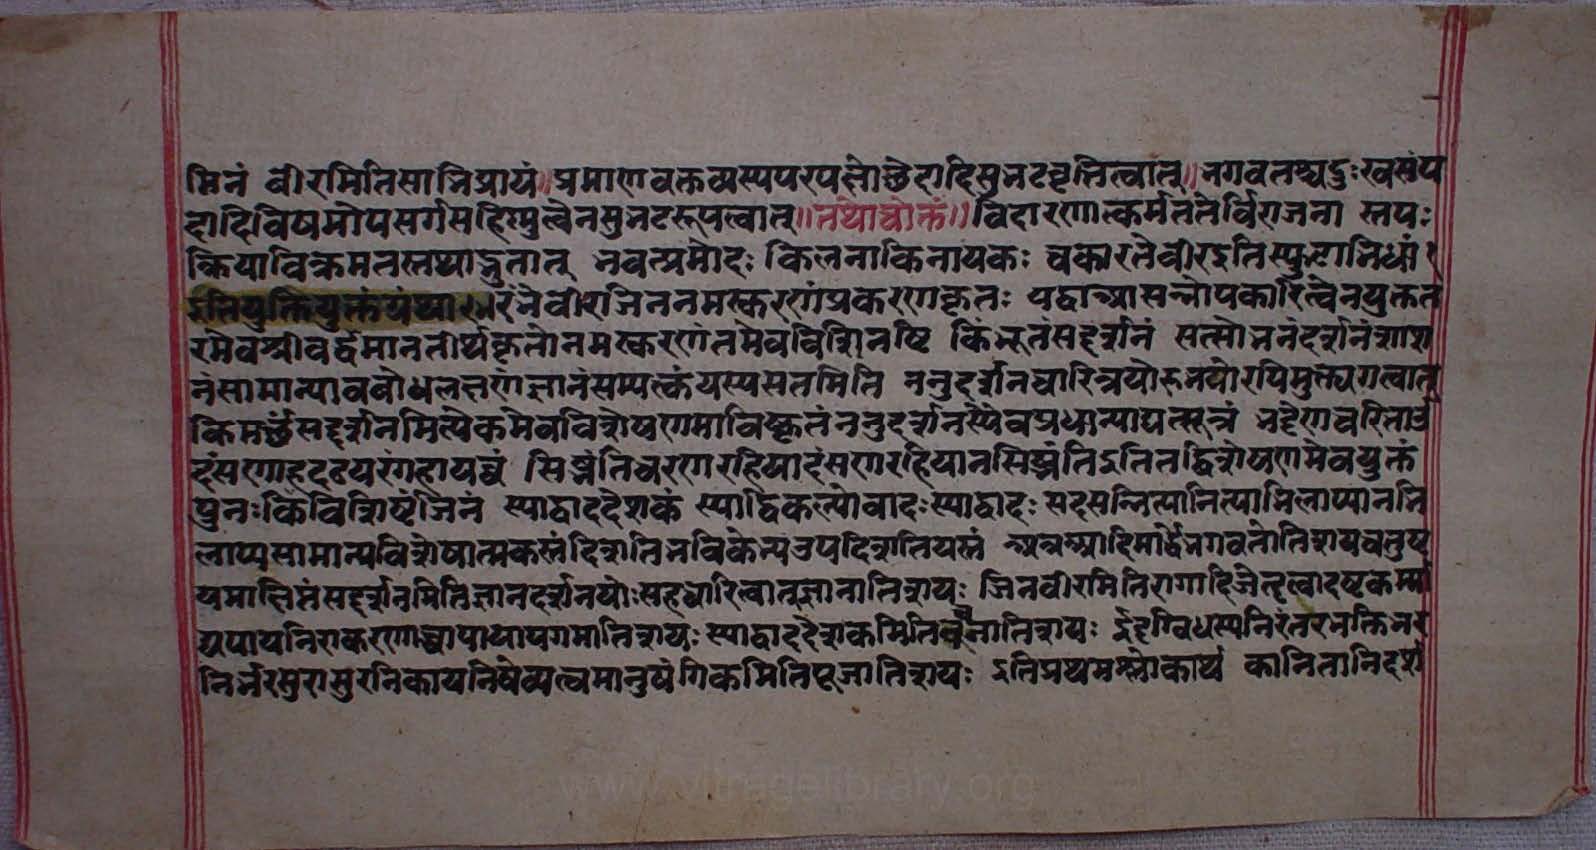 मिनं वीरमितिसाभिप्रायं॥प्रमाणवक्तव्यस्यपरपक्षोच्छेदादिसुभटवृत्तित्वात्॥भगवतश्चदुःखसंप
दादिविषमोपसर्गसहिष्णुत्वेनसुभटरूपत्वात्॥तथाचोक्तं॥विदारणात्कर्मततेर्विराजना त्तपः
क्रियाविक्रमतस्तथाद्भुतात् भवत्प्रमोदः किलनाकिनायकः चकारतेवीरइतिस्फुटाभिधां १
इतियुक्तियुक्तंयंथा वीरजिननमस्करणंप्रकरणकृतः यद्वान्यासन्नोपकारित्वेनयुक्तत
रमेवश्रीवर्द्धमानतीर्थकृतोनमस्करणंतमेवविशिनष्टि किंभूतसद्दर्शनं सत्सोभनंदर्शनंशाश
नंसामान्याववोधलक्षणंज्ञानंसम्यत्क्कंयस्यसतमिति ननुदर्शनचारित्रयोरुभयोरपिमुक्त्यंगत्वात्
किमर्थंसद्दर्शनमित्येकमेवविशेषणमाविष्कृतंननुदर्शनस्यैवप्रधान्याद्यत्सूत्रं भट्टेणचरित्ताउ
दंसणमहदढयरंगहायव्वं सिझंतिचरणरहियादंसणरहियानसिझंतिइतितद्विशेषणमेवयुक्तं
पुनःकिंविशिष्टंजिनं स्याद्वाददेशकं स्याद्विकल्पोवादःस्याद्वादः सदसन्नित्यानित्याभिलाप्यानभि
लाप्यसामान्यविशेषात्मकस्तंदिशतिभविकेन्यउपदिशतियस्तं भगवतोतिशयचतुष्ट
यमाक्षिप्तंसद्दर्शनमितिज्ञानदर्शनयोःसहचारित्वात्ज्ञानातिशयः जिनवीरमितिरागादिजेतृत्वादष्टकर्म्मा
द्यपायनिराकरणाच्चापायापगमातिशयः स्याद्वाददेशकमितिवचनातिशयः ईदृग्विधस्यनिरंतरभक्तिभर
निर्भरसुरासुरनिकायनिषेव्यत्वमानुषंगिकमितिपूजातिशयः इतिप्रथमश्लोकार्थ कानितानिदर्श
www.vitragelibrary.org